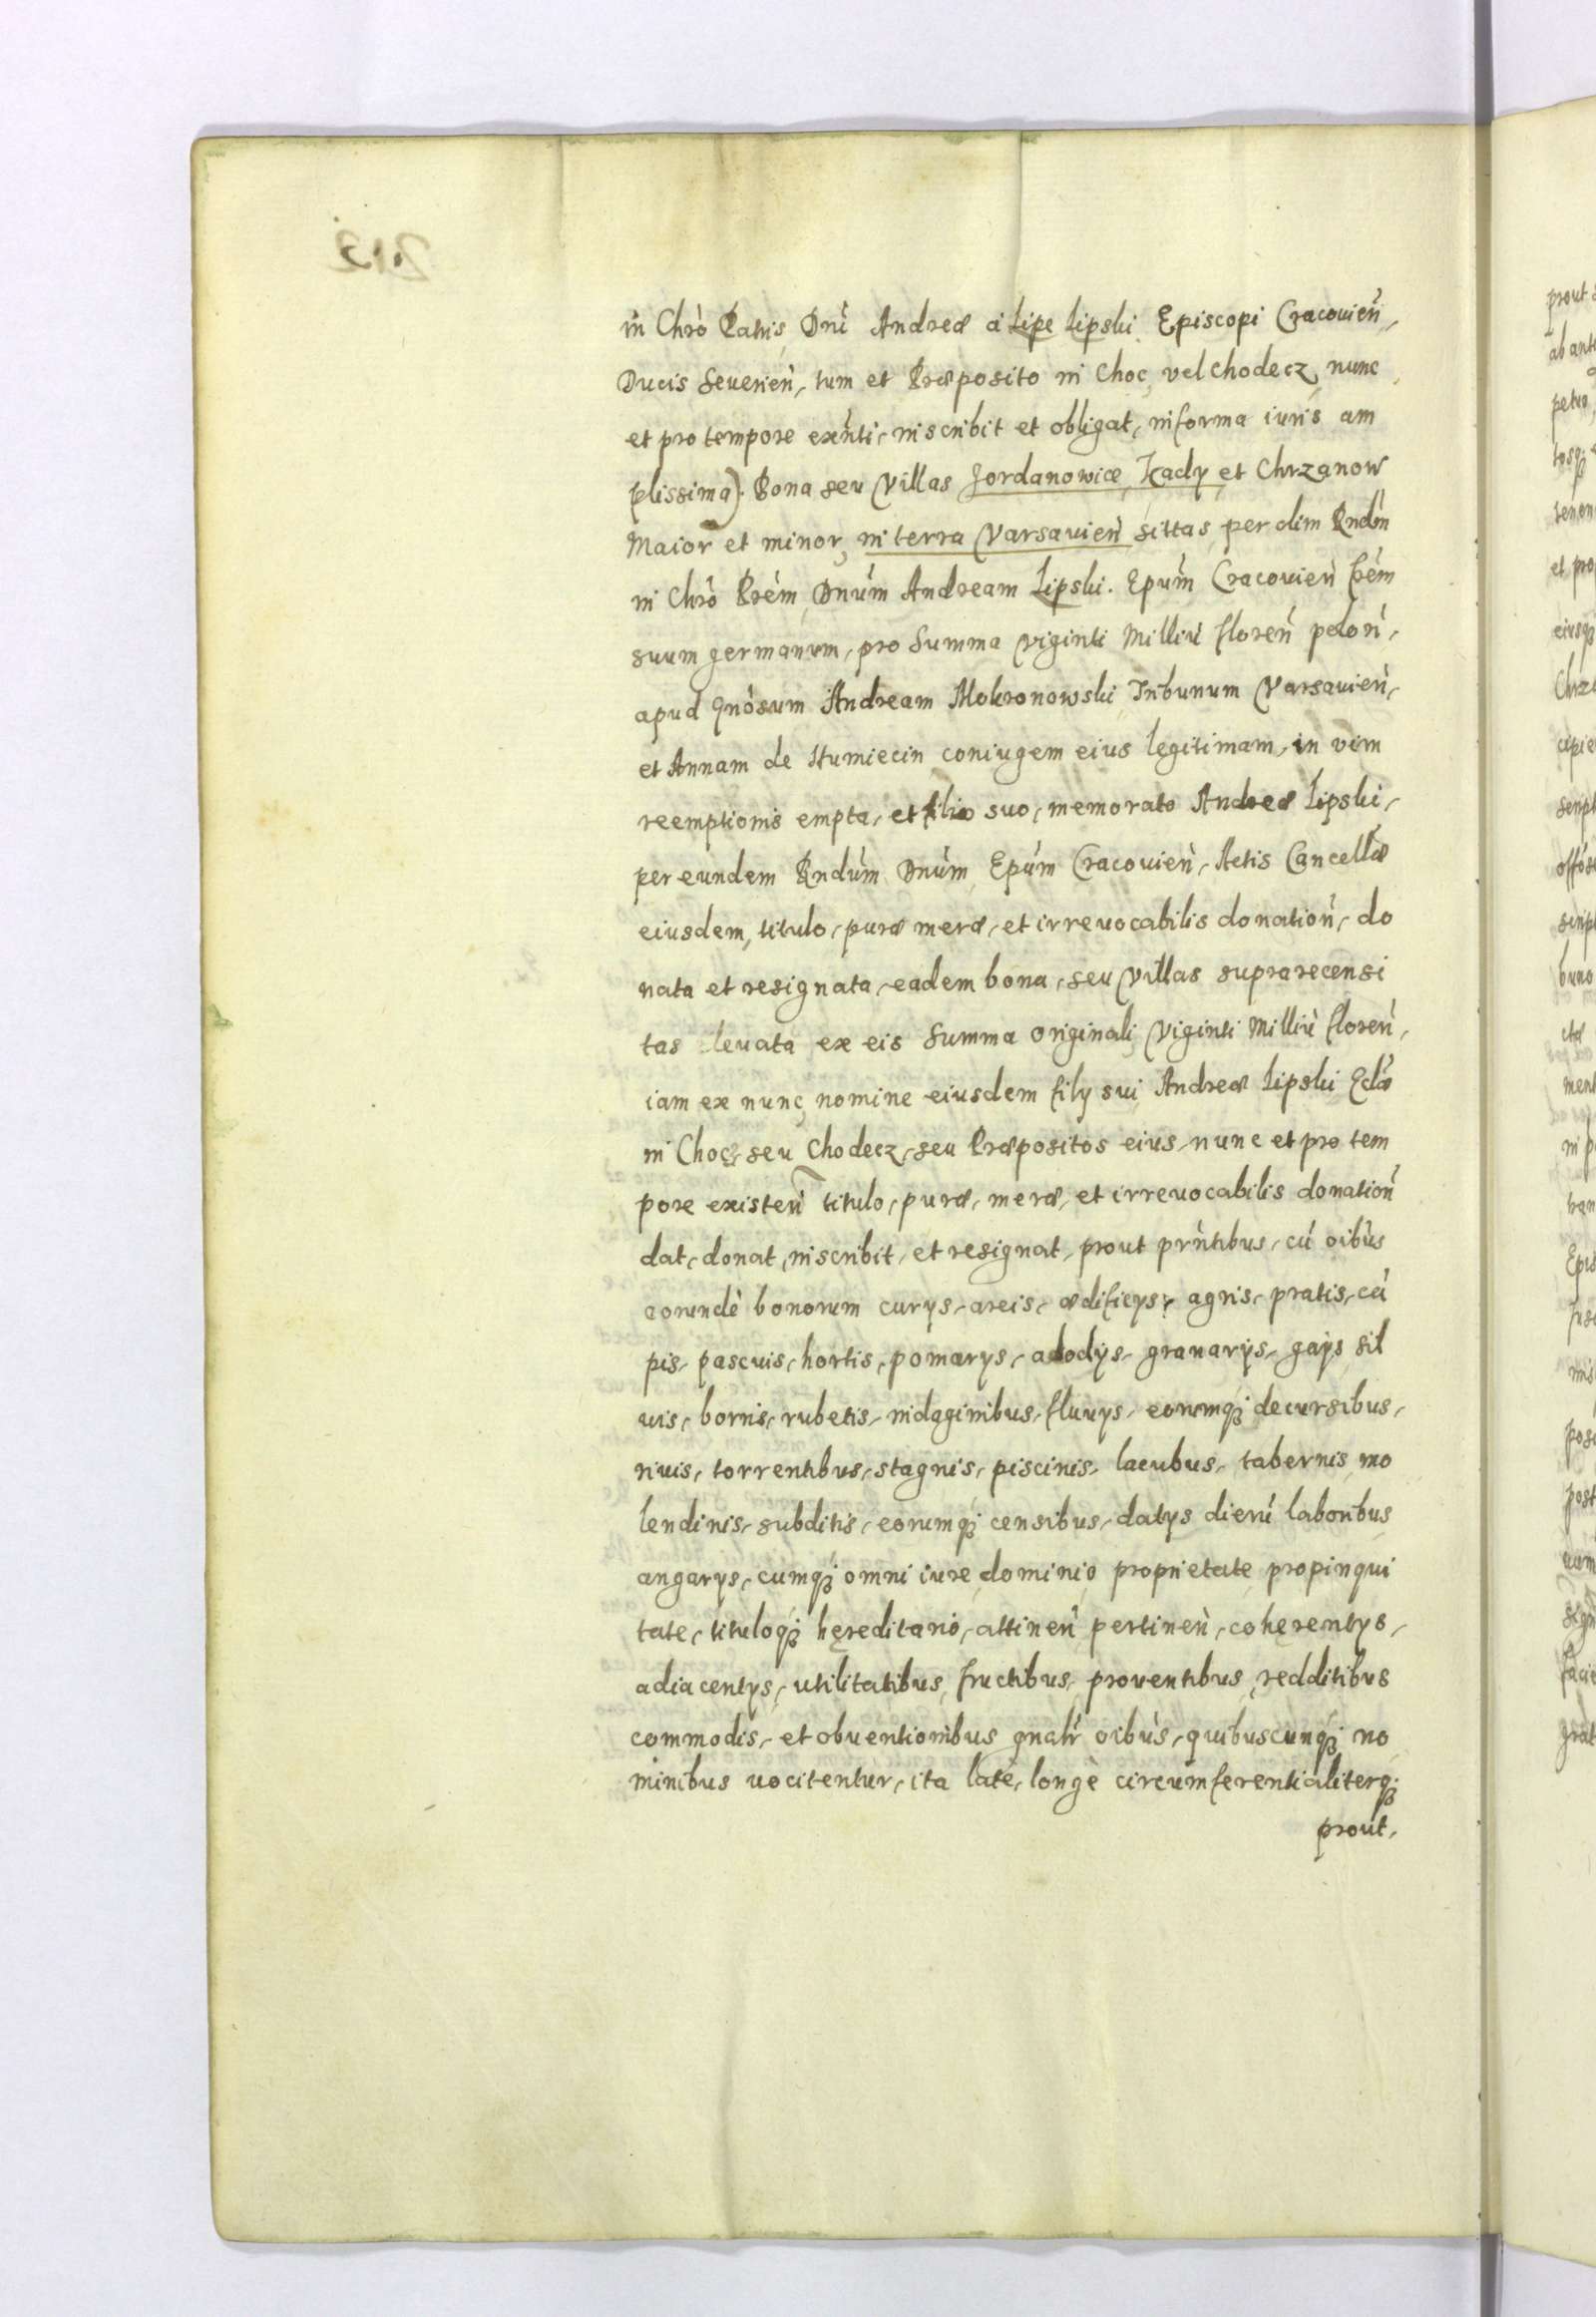 in Chrò Patris Dnì Andreæ à Lipe Lipski Episcopi Cracouień,
Ducis Seuerień, tum et Præposito in Choc, vel Chodecz, nunc
et pro tempore exńti, inscribit et obligat, in forma iuris am
plissima). Bona seu Villas Jordanowice, Kady et Chrzanow
Maior et minor, in terra Varsauień sittas, per olim Rndùm
in Chrò Prèm Dnùm Andream Lipski. Epùm Cracouień frèm
suum germanum, pro Summa viginti Milliù floreń poloń,
apud Gnòsum Andream Mokronowski Tribunum Varsauień,
et Annam de Humiecin coniugem eius legitimam, in vim
reemptionis empta, et filio suo, memorato Andreæ Lipski,
per eundem Rndùm Dnùm Epùm Cracouień, Actis Cancellæ
eiusdem, titulo, puræ meræ, et irreuocabilis donationń, do
nata et resignata, eadem bona, seu Villas suprarecensi
tas leuata ex eis Summa originali Viginti Milliù floreń,
iam ex nunc, nomine eiusdem filÿ sui Andreæ Lipski Eclæ
in Choc, seu Chodecz, seu Præpositos eius, nunc et pro tem
pore existeń titulo, puræ, meræ, et irreuocabilis donatioń
dat, donat, inscribit, et resignat, prout prńtibus, cù oibùs
eorundè bonorum curÿs, areis, ædificÿs, agris, pratis, cà
pis, pascuis, hortis, pomarÿs, allodÿs, granarÿs, gaÿs sil
uis, borris, rubetis, indaginibus, fluuÿs, eorumq; decursibus,
riuis, torrentibus, stagnis, piscinis, lacubus, tabernis, mo
lendinis, subditis, eorumq; censibus, datÿs dierù laboribus
angarÿs, cumq; omni iure dominio proprietate propinqui
tate, tituloq; hęreditario, attineń pertineń, cohęrentÿs,
adiacentÿs, utilitatibus, fructibus, prouentibus, redditibus
commodis, et obuentionibus gnalr oibùs, quibuscunq; no
minibus vocitentur, ita latè, longè circumferentialiterq;
prout,